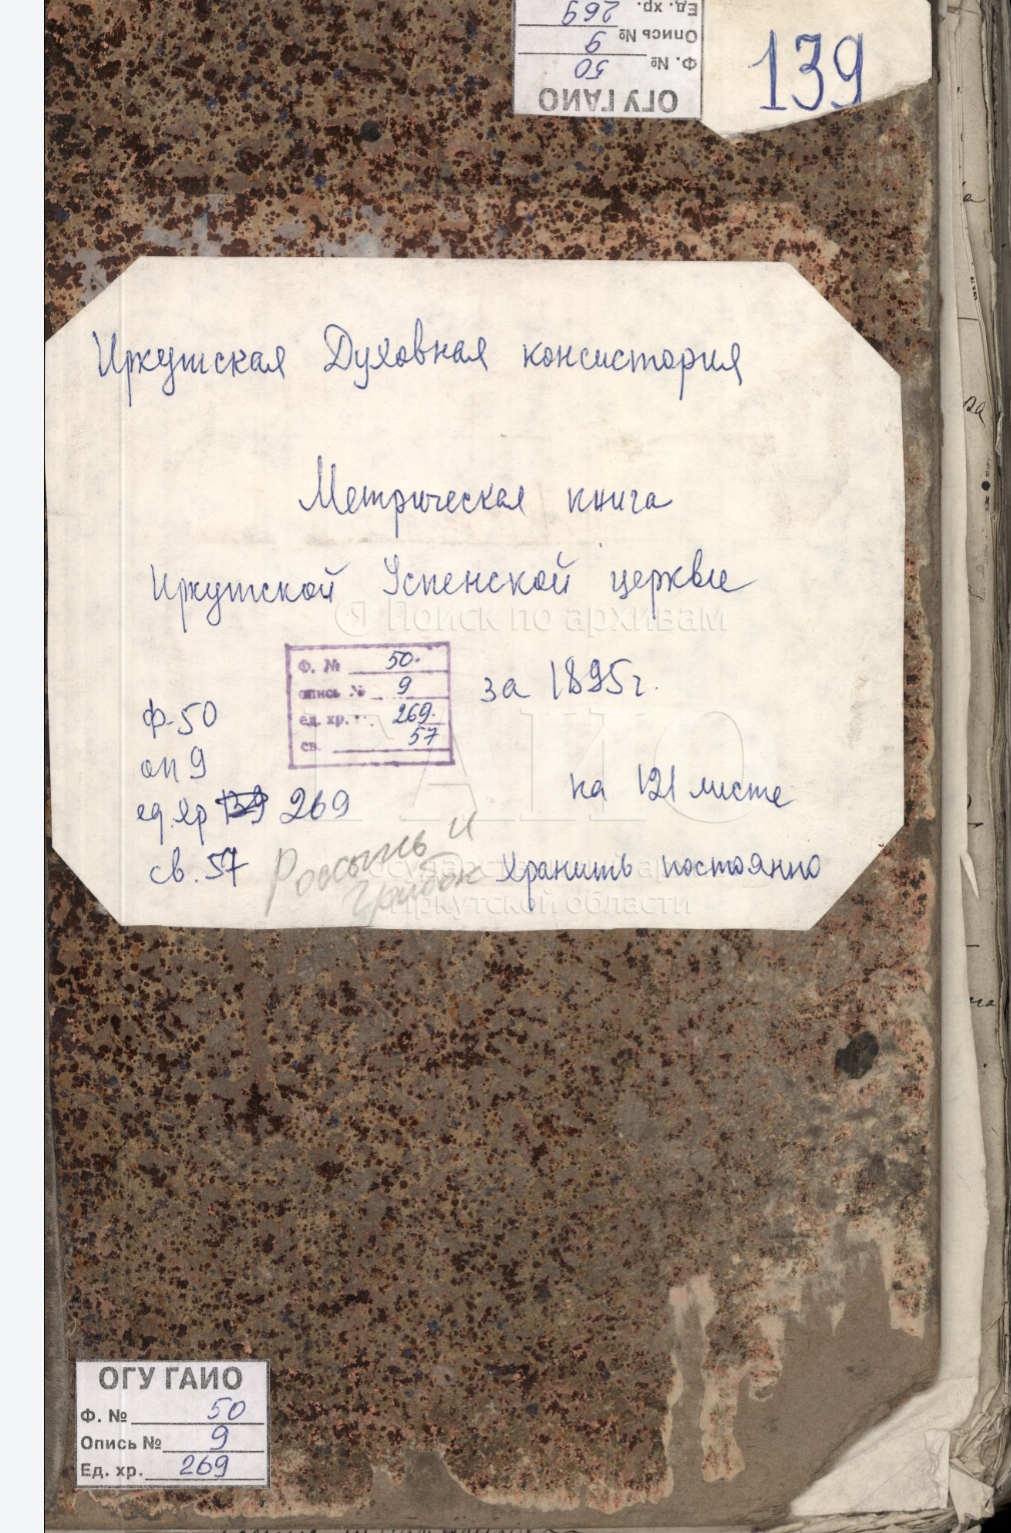 ОГУ ГАИО
Ф. № 50
Опись № 9
Ед. хр. 269
139
Иркутская Духовная консистория
Метрическая книга
Иркутской Успенской церкви
Поиск по архивам
Ф. № 50.
опись № 9
ед. хр. 269.
св. 57
за 1895г.
ф-50
оп 9
ед.хр 139 269
св. 57
на 121 листе
Россыпь и
Хранить постоянно
ГАИО
Иркутской области
ОГУ ГАИО
Ф. № 50
Опись № 9
Ед. хр. 269